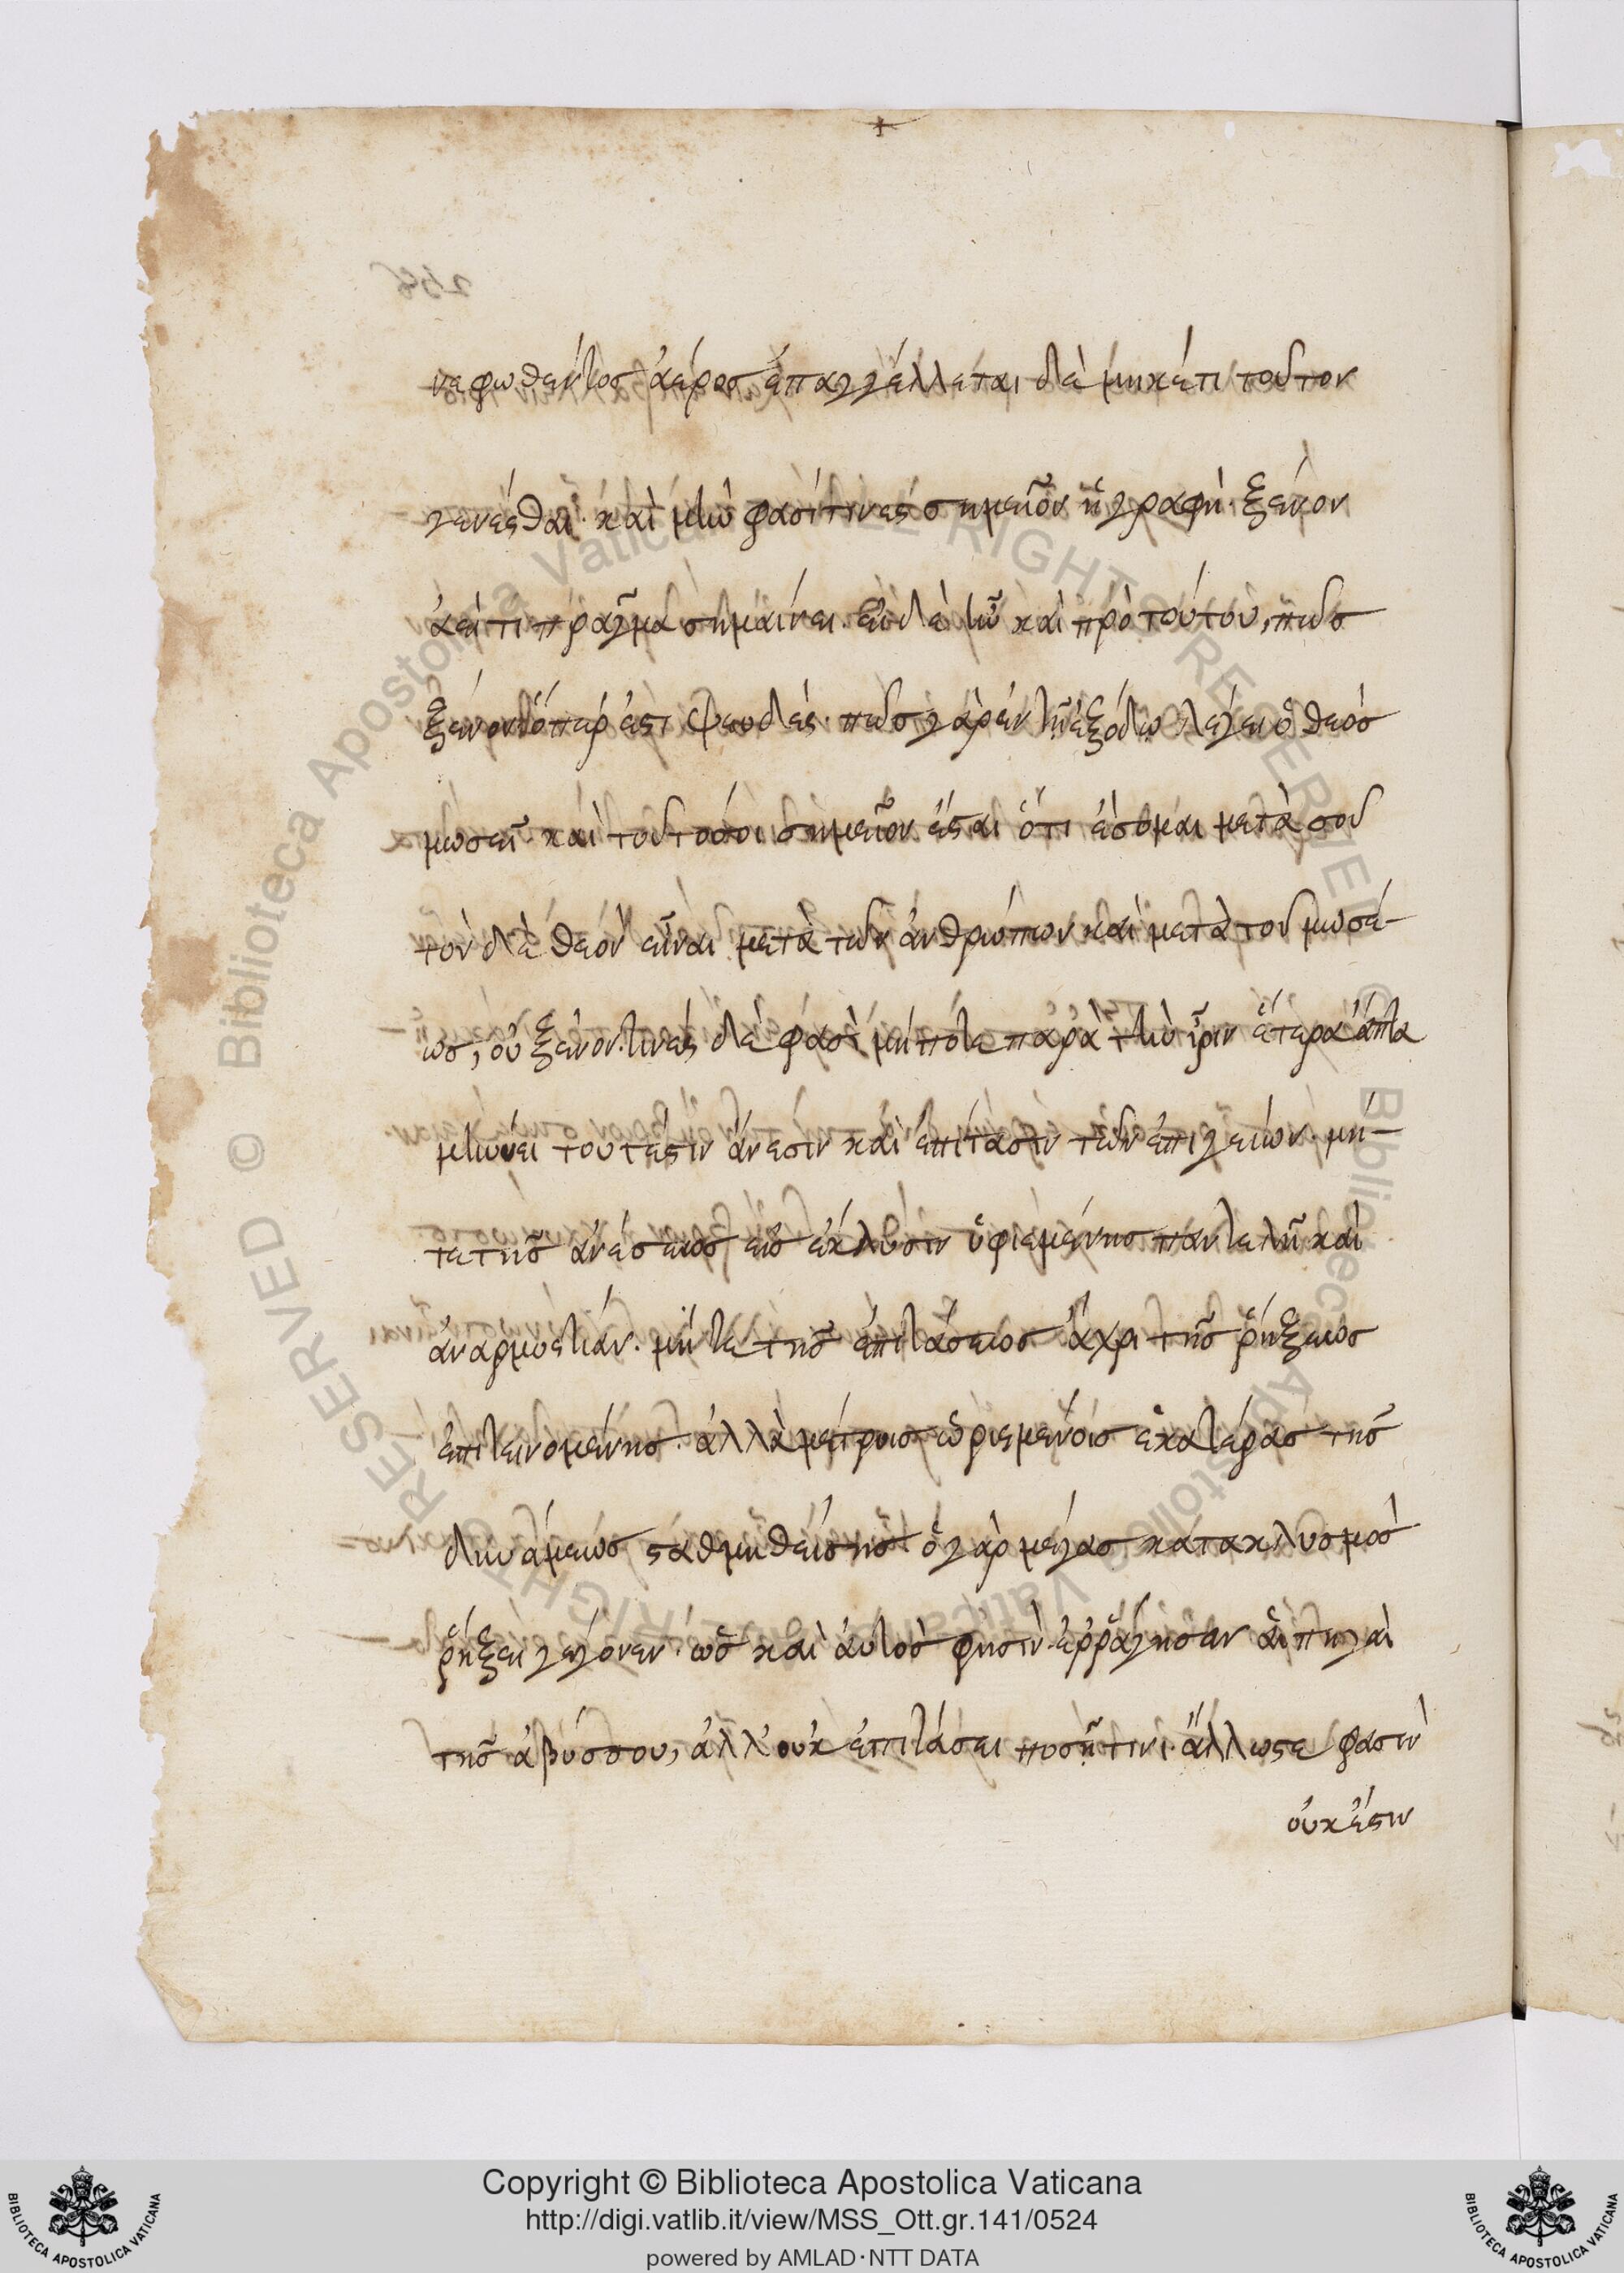 νεφωθέντος ἀέρος ἐπαγγέλλεται δὲ μηκέτι τοῦτον
γενέσθαι· καὶ μὴν φασί τινες σημεῖον ἡ γραφὴ ξένον
ἀεί τι πρᾶγμα σημαίνει. εἰ δὲ ἦν καὶ πρὸ τούτου, πῶς
ξένον ὅπερ ἐστι ψευδές· πῶς γὰρ ἐν τῇ ἐξόδω λέγει ὁ θεὸς
μωσεῖ· καὶ τοῦτο σοι σημεῖον ἔσται ὅτι ἔσομαι μετὰ σοῦ
τὸν δὲ θεὸν εἶναι μετὰ τῶν ἀνθρώπων καὶ μετὰ τοῦ μωσέ-
ως, οὐ ξένον. τινὲς δὲ φασὶ μήποτε παρὰ τὴν ἶριν ἕτερα ἄττα
μηνύει τουτέστιν ἄνεσιν καὶ ἐπίτασιν τῶν ἐπιγείων. μή-
τε τῆς ἀνέσεως εἰς ἔκλυσιν ὑφιεμένης παντελῆ καὶ
ἀναρμοστίαν. μήτε τῆς ἐπιτάσεως ἄχρι τῆς ῥήξεως
ἐπιτεινομένης. ἀλλὰ μέτροις ὡρισμένοις ἑκατέρας τῆς
δυνάμεως σταθμηθείσης ὁ γὰρ μέγας κατακλυσμὸς
ῥήξει γέγονεν. ὡς καὶ αὐτὸς φησὶν ἐρράγησαν αἱ πηγαὶ
τῆς ἀβύσσου, ἀλλ' οὐκ ἐπιτάσει ποσῇ τινι. ἄλλωστε φασὶν
οὐκ ἔστιν
Copyright © Biblioteca Apostolica Vaticana
http://digi.vatlib.it/view/MSS_Ott.gr.141/0524
powered by AMLAD·NTT DATA